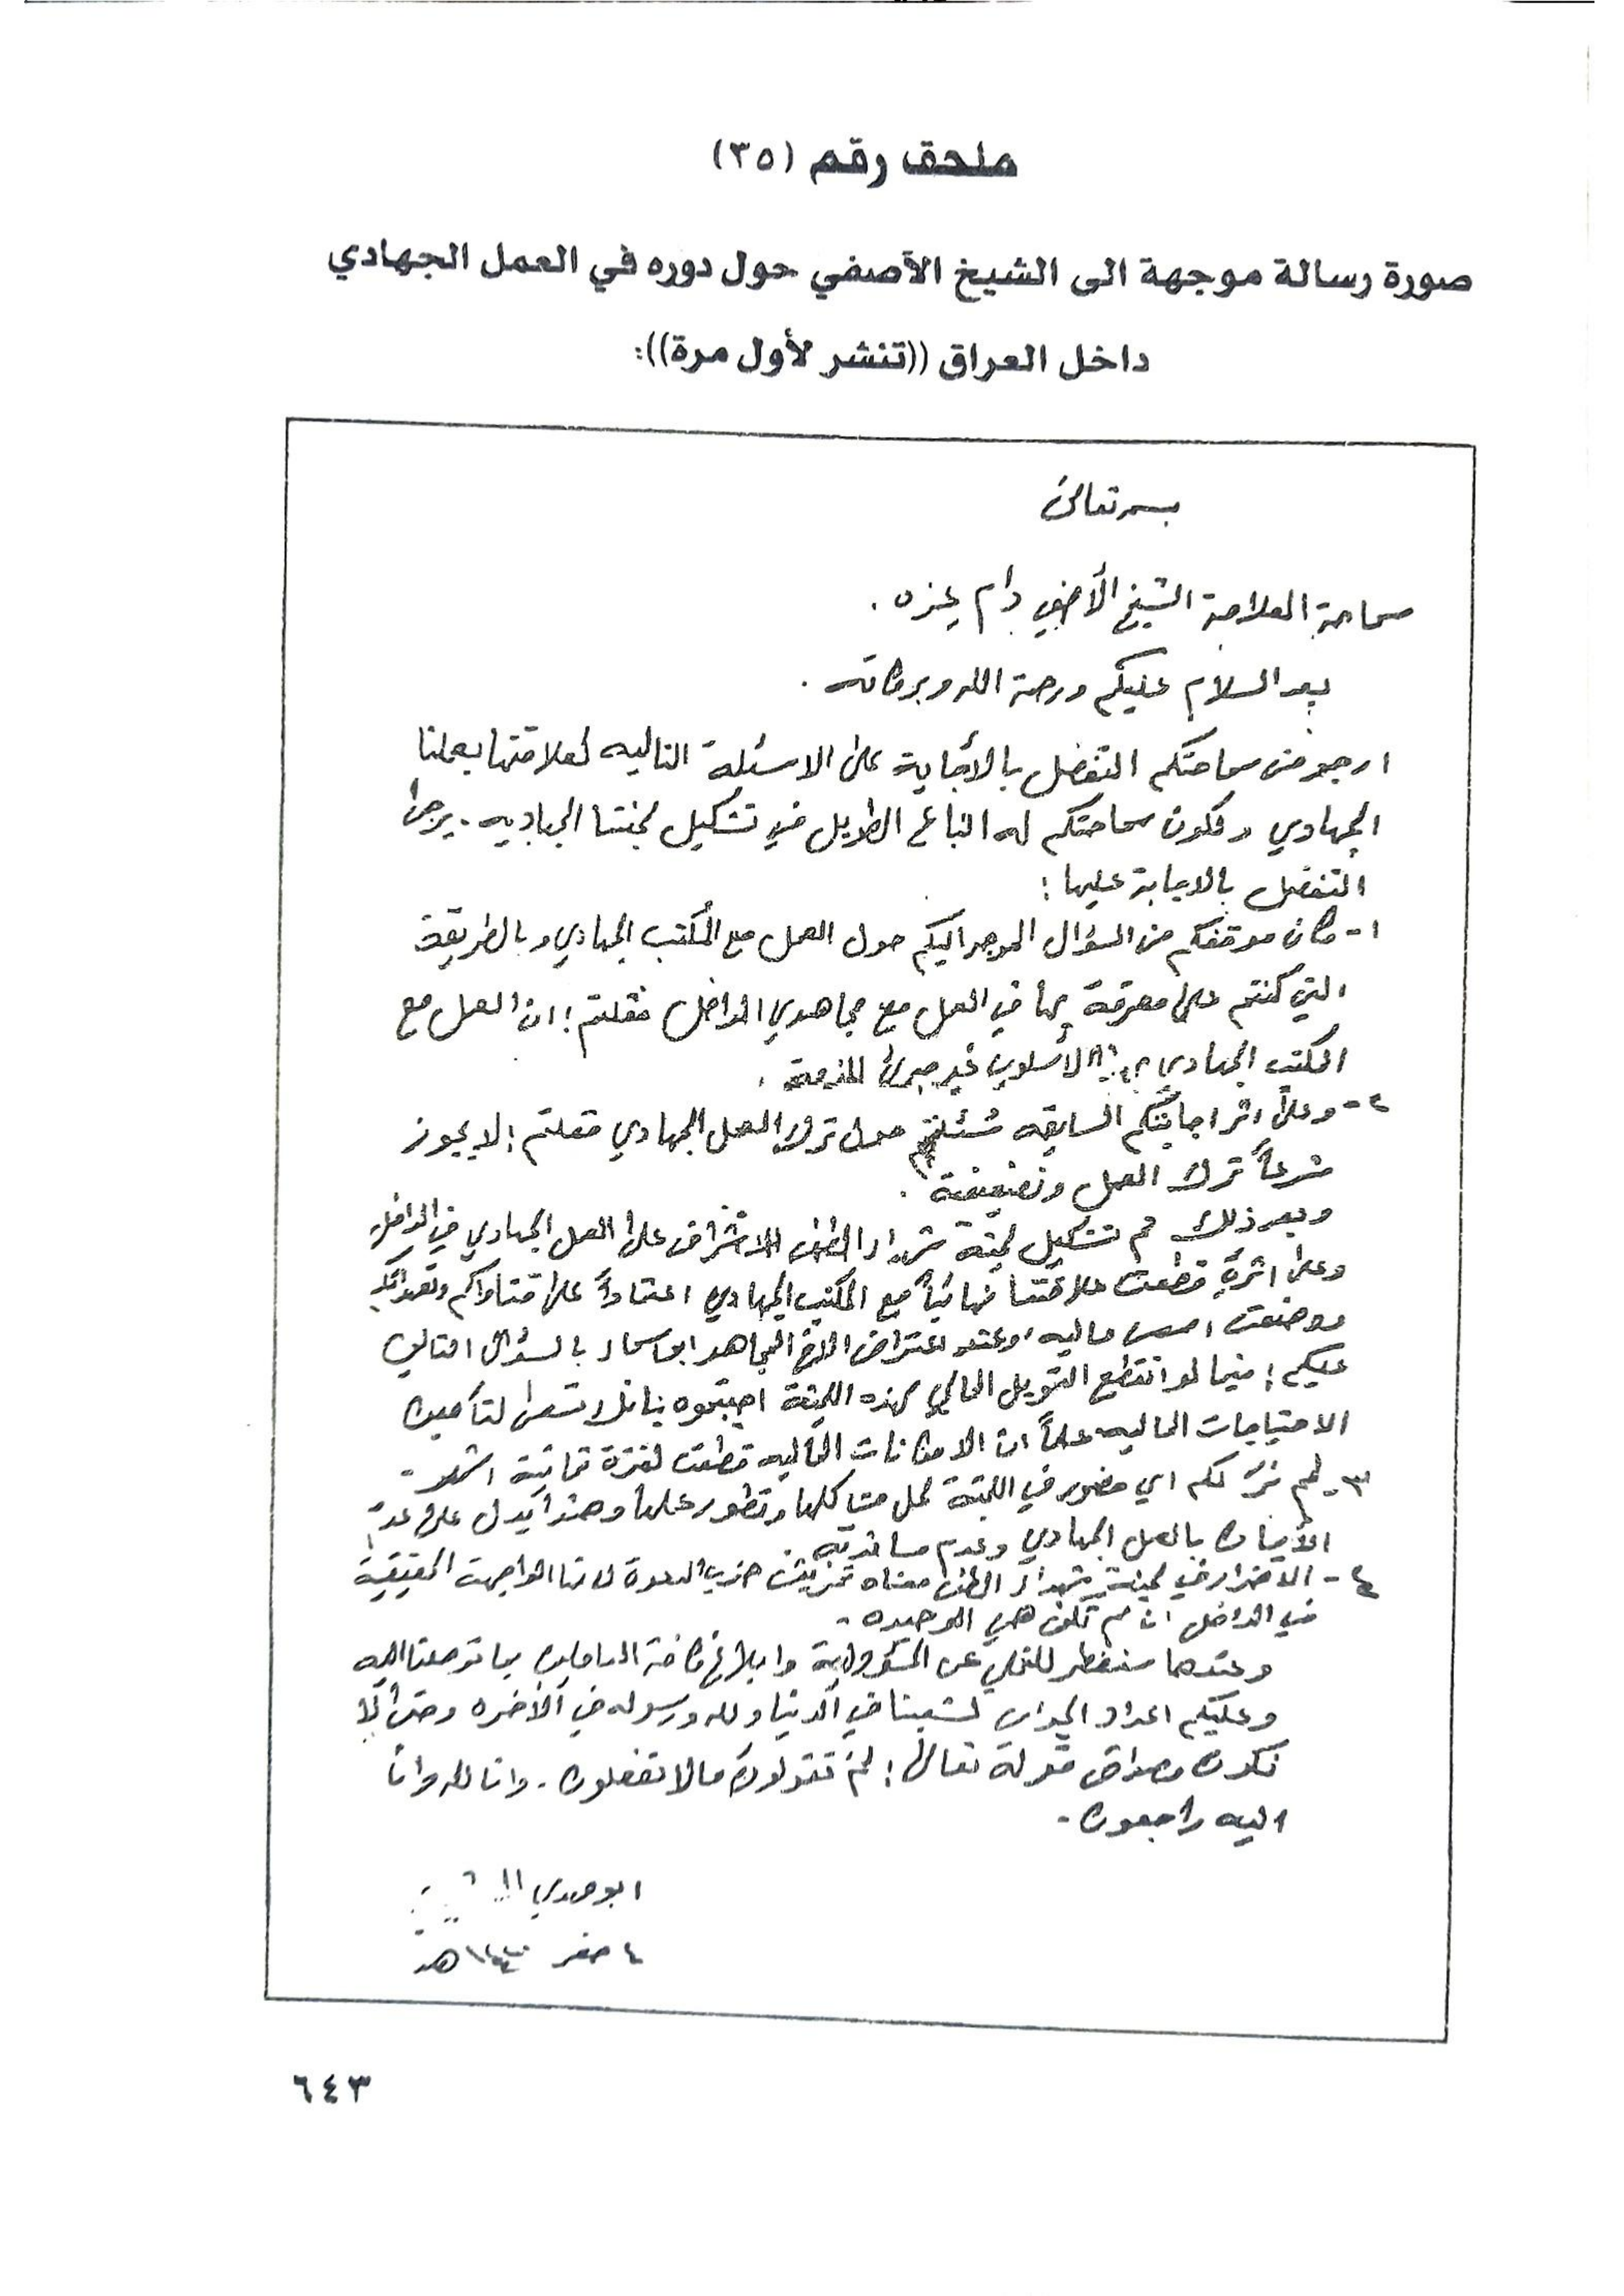 ملحق رقم (٣٥)
صورة رسالة موجهة الى الشيخ الآصفي حول دوره في العمل الجهادي
داخل العراق ((تنشر لأول مرة)):
بسمه تعالى
سماحة العلامة الشيخ الآصفي دام عزه .
بعد السلام عليكم ورحمة الله وبركاته .
ارجو من سماحتكم التفضل بالأجابة على الاسئلة التاليه لعلاقتها بعملنا
الجهادي ولكون سماحتكم له الباع الطويل في تشكيل لجنتنا الجهاديه . يرجى
التفضل بالاجابة عليها :
١- كان موقفكم من السؤال الموجه اليكم حول العمل مع المكتب الجهادي وبالطريقة
التي كنتم على معرفة بها في العمل مع مجاهدي الداخل فقلتم : ان العمل مع
المكتب الجهادي الأسلوب غير مبرئ للذمة .
٢- وعلى اثر اجابتكم السابقه سُئلتم حول ترك العمل الجهادي فقلتم : لا يجوز
شرعاً ترك العمل وتضعيفه .
وبعد ذلك تم تشكيل لجنة شهداء الطف للاشراف على العمل الجهادي في الداخل
وعلى اثره قطعت علاقتنا نهائياً مع المكتب الجهادي اعتماداً على فتاواكم
ووضعت اسس ماليه ، وعند اعتراض الاخ المجاهد ابو سجاد بالسؤال التالي
عليكم : فيما لو انقطع التمويل المالي لهذه اللجنة اجبتموه بأنك تسعى لتأمين
الاحتياجات الماليه علماً ان الامكانات المآليه قطعت لفترة ثمانية اشهر -
٣- لم نرَ لكم اي حضور في اللجنة لحل مشاكلها وتطور عملها وهذا يدل على عدم
الأيمان بالعمل الجهادي وعدم مساندته .
٤- الاضرار في لجنة شهداء الطف معناه تمزيق حزب الدعوة لانها الواجهة الحقيقية
في الداخل ان لم تكن هي الوحيده -
وعندها سنضطر للتخلي عن المسؤولية وابلاغ كافة العاملين بما توصلنا اليه
وعليكم اعداد الجواب لشعبنا في الدنيا ولله ورسوله في الآخره وحتى لا
نكون مصداق قوله تعالى : لمَ تقولون ما لا تفعلون . وانا لله وانا
اليه راجعون -
ابو مهدي
٤ صفر هـ
٦٤٣